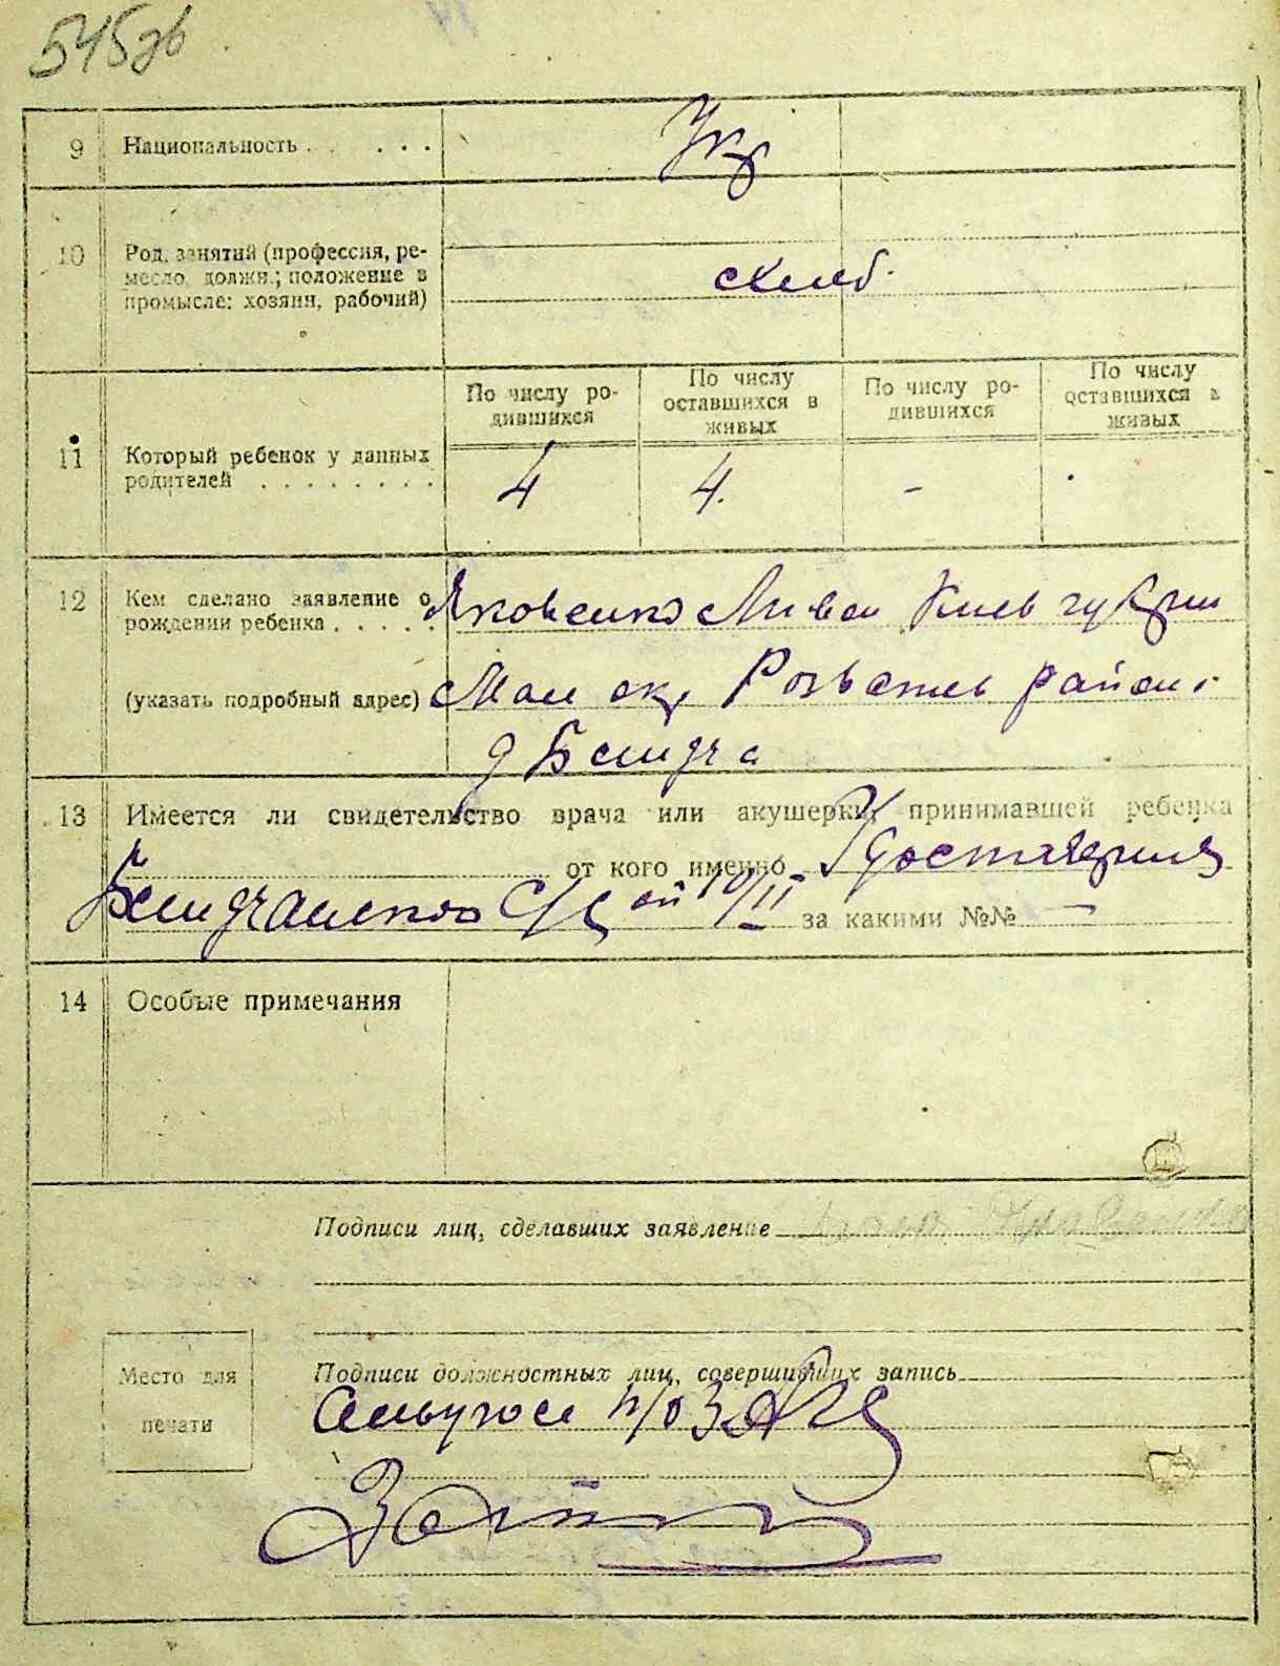 545
9 Национальность . . . . .
Укр
10 Род. занятий (профессия, ре-
месло, должн.; положение в
промысле: хозяин, рабочий)
11 Который ребенок у данных
родителей . . . . . . . .
По числу ро-
дившихся
По числу
оставшихся в
живых
По числу ро-
дившихся
По числу
оставшихся в
живых
4 4. - .
12 Кем сделано заявление о
рождении ребенка . . . . .
(указать подробный адрес)
Яковенко Киев губерн
Мал окр Розваж район
13 Имеется ли свидетельство врача или акушерки, принимавшей ребенка
от кого именно Удостоверения
С/С 10/II за какими №№ —
14 Особые примечания
Подписи лиц, сделавших заявление
Место для
печати
Подписи должностных лиц, совершивших запись